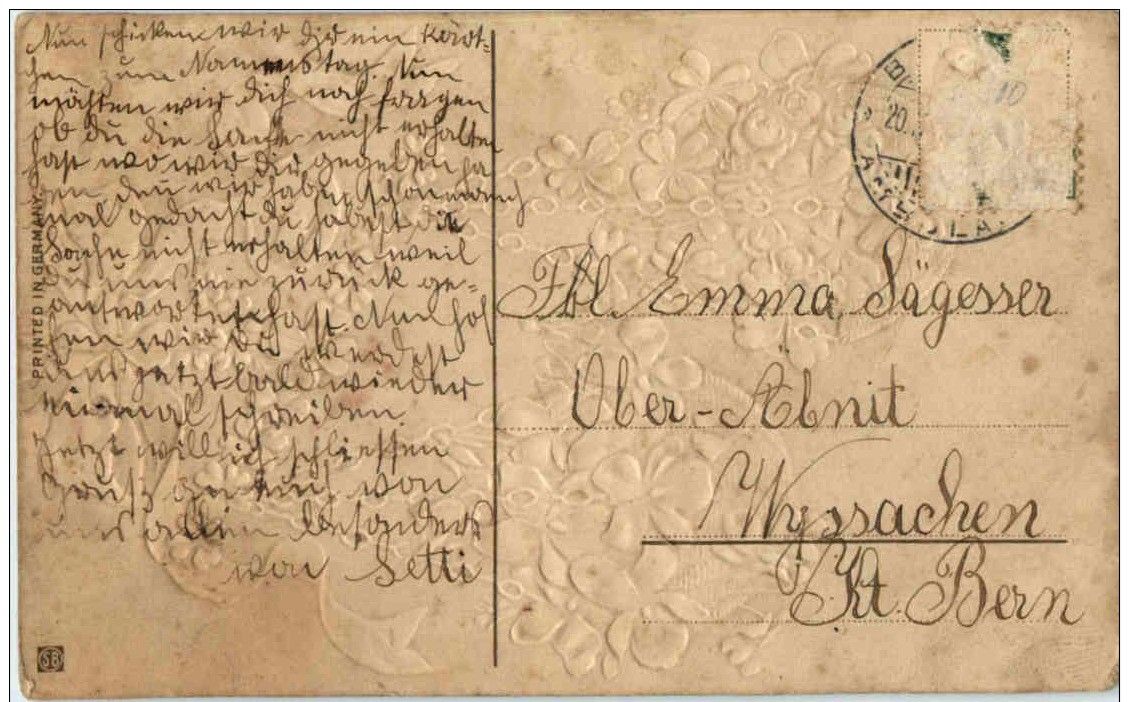 Nun schicken wir dir ein Kärt-
chen zum Namenstag. Nun
möchten wir dich noch fragen
ob du die Sache nicht erhalten
hast wo wir dir gegeben ha
ben den wir haben schon manch
mal gedacht du habest die
Sache nicht erhalten weil
du uns nie zurück ge-
antwortet hast. Nun hof
fen wir du werdest
uns jetzt bald wieder
einmal schreiben.
Jetzt will ich schliessen
Gruss an euch von
uns allen besonders
von Setti
PRINTED IN GERMANY
SB
20.
10
Frl. Emma Sägesser
Ober-Äbnit
Wyssachen
Kt. Bern